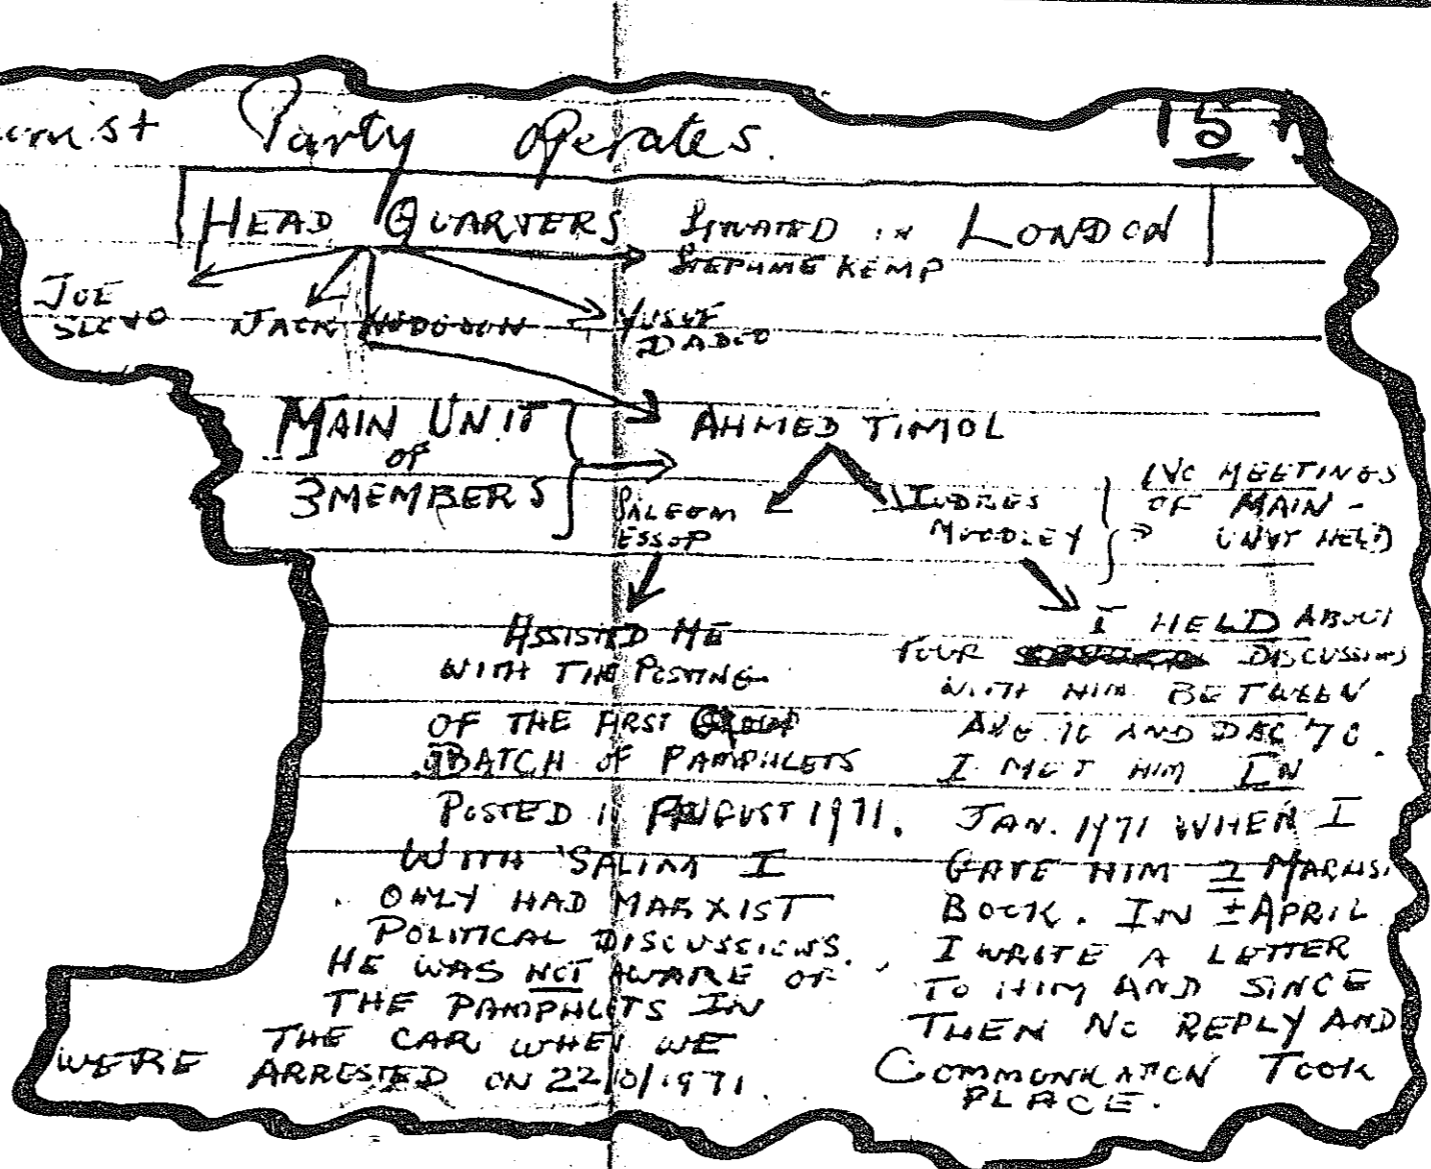 Party operates.
15
HEAD QUARTERS SITUATED IN LONDON
STEPHANIE KEMP
JOE
SLOVO
JACK HODGSON
YUSUF
DADOO
MAIN UNIT
OF
3 MEMBERS
AHMED TIMOL
SALEEM
ESSOP
INDRES
MOODLEY
NO MEETINGS
OF MAIN -
UNIT HELD
ASSISTED ME
WITH THE POSTING
OF THE FIRST GROUP
BATCH OF PAMPHLETS
POSTED 11 AUGUST 1971.
WITH SALIM I
ONLY HAD MARXIST
POLITICAL DISCUSSIONS.
HE WAS NOT AWARE OF
THE PAMPHLETS IN
THE CAR WHEN WE
WERE ARRESTED ON 22/10/1971.
I HELD ABOUT
FOUR DISCUSSIONS
WITH HIM BETWEEN
AUG. 70 AND DEC '70.
I MET HIM IN
JAN. 1971 WHEN I
GAVE HIM 2 MARXIS.
BOOK. IN ± APRIL
I WROTE A LETTER
TO HIM AND SINCE
THEN NO REPLY AND
COMMUNICATION TOOK
PLACE.